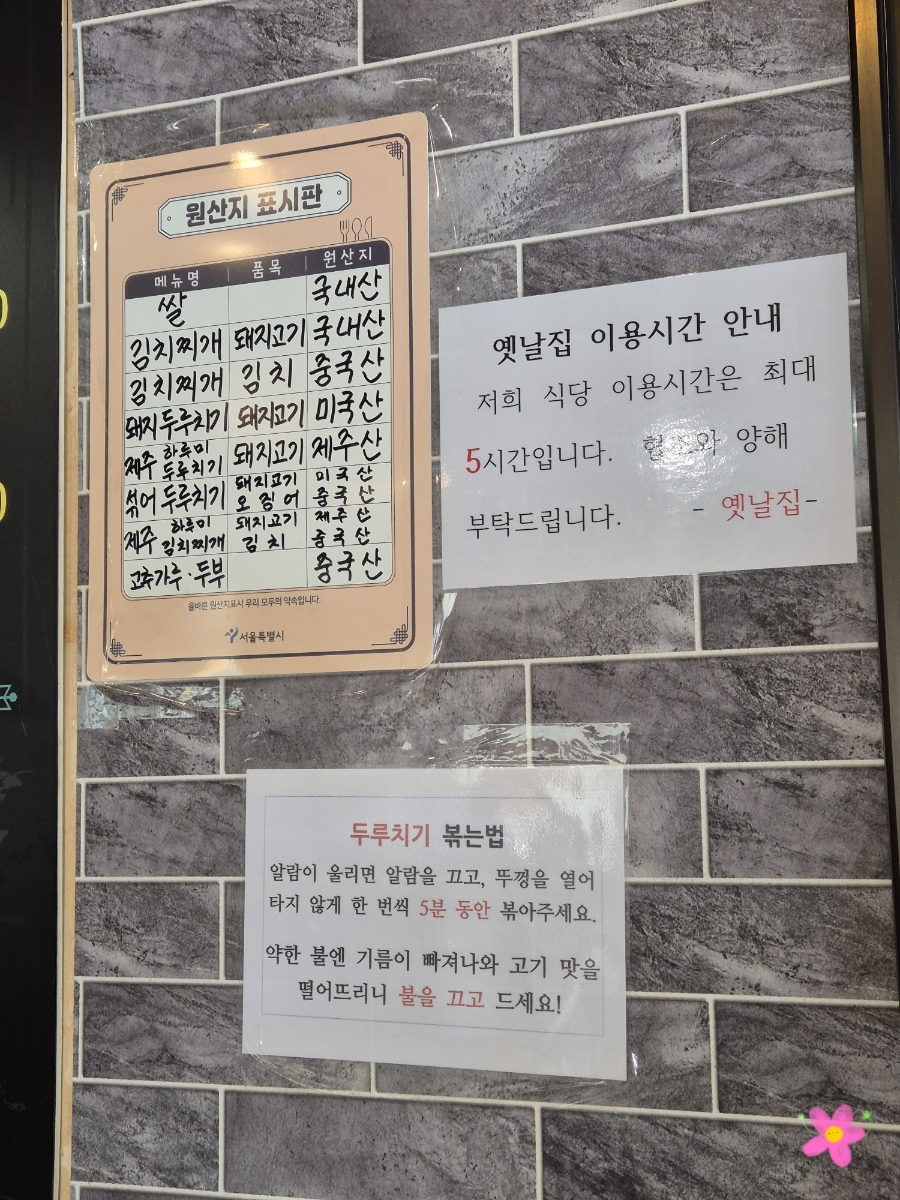 원산지 표시판
메뉴명 품목 원산지
쌀 국내산
김치찌개 돼지고기 국내산
김치찌개 김치 중국산
돼지두루치기 돼지고기 미국산
제주 하루미 두루치기 돼지고기 제주산
섞어두루치기 돼지고기 미국산
오징어 중국산
제주 하루미 김치찌개 돼지고기 제주산
김치 중국산
고추가루·두부 중국산
올바른 원산지표시 우리 모두의 약속입니다.
서울특별시
옛날집 이용시간 안내
저희 식당 이용시간은 최대
5시간입니다. 협조와 양해
부탁드립니다. - 옛날집-
두루치기 볶는법
알람이 울리면 알람을 끄고, 뚜껑을 열어
타지 않게 한 번씩 5분 동안 볶아주세요.
약한 불엔 기름이 빠져나와 고기 맛을
떨어뜨리니 불을 끄고 드세요!